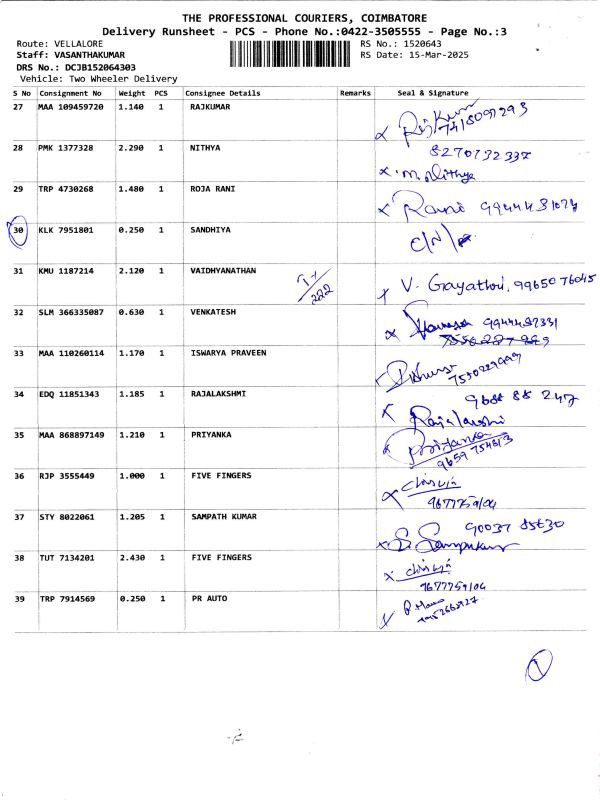 THE PROFESSIONAL COURIERS, COIMBATORE
Delivery Runsheet - PCS - Phone No.:0422-3505555 - Page No.:3
Route: VELLALORE RS No.: 1520643
Staff: VASANTHAKUMAR RS Date: 15-Mar-2025
DRS No.: DCJB152064303
Vehicle: Two Wheeler Delivery
S No Consignment No Weight PCS Consignee Details Remarks Seal & Signature
27 MAA 109459720 1.140 1 RAJKUMAR
7418097293
28 PMK 1377328 2.290 1 NITHYA 8270732337
x m. Nithya
29 TRP 4730268 1.480 1 ROJA RANI x Rani
30 KLK 7951801 0.250 1 SANDHIYA
C/N/
31 KMU 1187214 2.120 1 VAIDHYANATHAN
222 x V. Gayathri, 99650 76045
32 SLM 366335087 0.630 1 VENKATESH
x 9944482331
33 MAA 110260114 1.170 1 ISWARYA PRAVEEN
34 EDQ 11851343 1.185 1 RAJALAKSHMI 9688 88 247
35 MAA 868897149 1.210 1 PRIYANKA Priyanka
9659 754313
36 RJP 3555449 1.000 1 FIVE FINGERS
x 9677759104
37 STY 8022061 1.205 1 SAMPATH KUMAR 90037 85630
x S. Sampathkumar
38 TUT 7134201 2.430 1 FIVE FINGERS
x 9677759104
39 TRP 7914569 0.250 1 PR AUTO
1